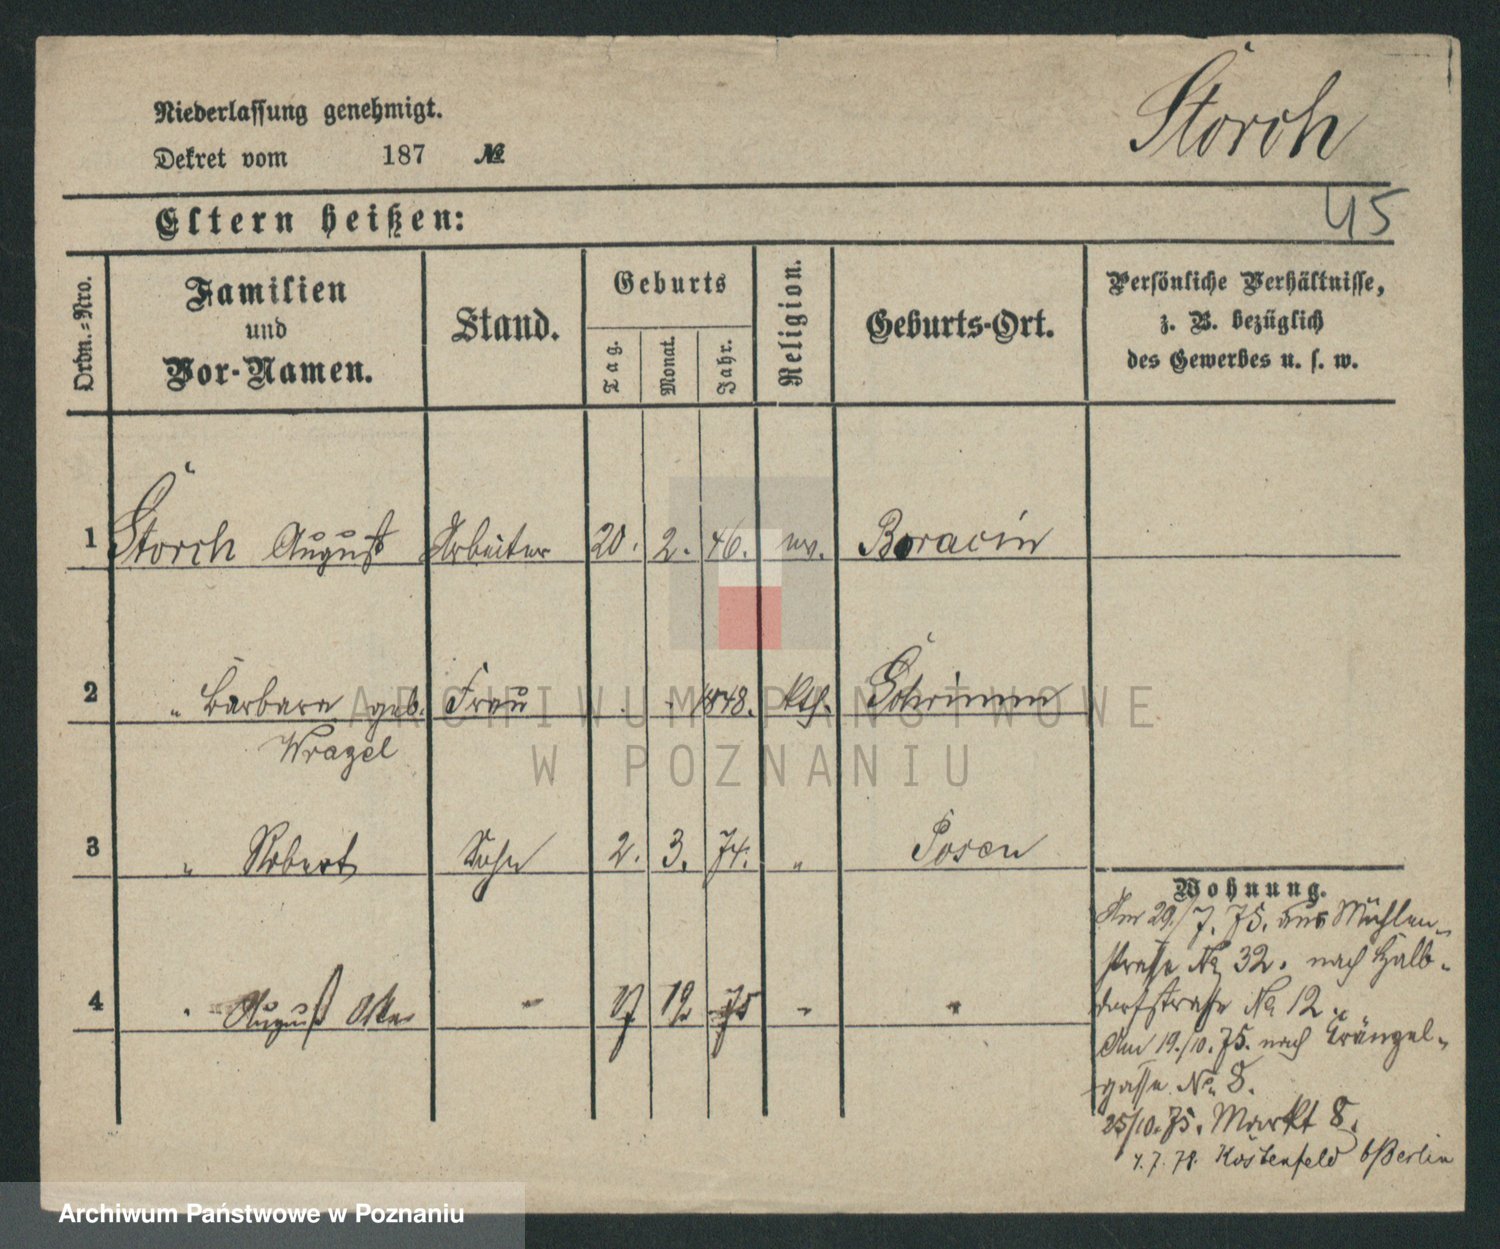 Storch
Niederlassung genehmigt.
Dekret vom 187 №
45
Eltern heißen:
Ordn.-Nro.
Familien
und
Vor-Namen.
Stand.
Geburts
Tag.
Monat.
Jahr.
Religion.
Geburts-Ort.
Persönliche Verhältnisse,
z. B. bezüglich
des Gewerbes u. s. w.
1 Storch August Arbeiter 20. 2. 46. ev. Boracin
2 " Barbara geb. Frau 1848. kth. Schrimm
Wrazel
3 " Robert Sohn 2. 3. 74. " Posen
4 " August " 17 12 75 " "
Wohnung.
Am 29./7. 75. aus Mühlen-
straße No 32. nach Halb-
dorfstraße No 12.
Am 19./10. 75. nach Kränzel-
gasse No 8.
25/10. 75. Markt 8.
4.7.78. b/Berlin
ARCHIWUM PAŃSTWOWE
W POZNANIU
Archiwum Państwowe w Poznaniu